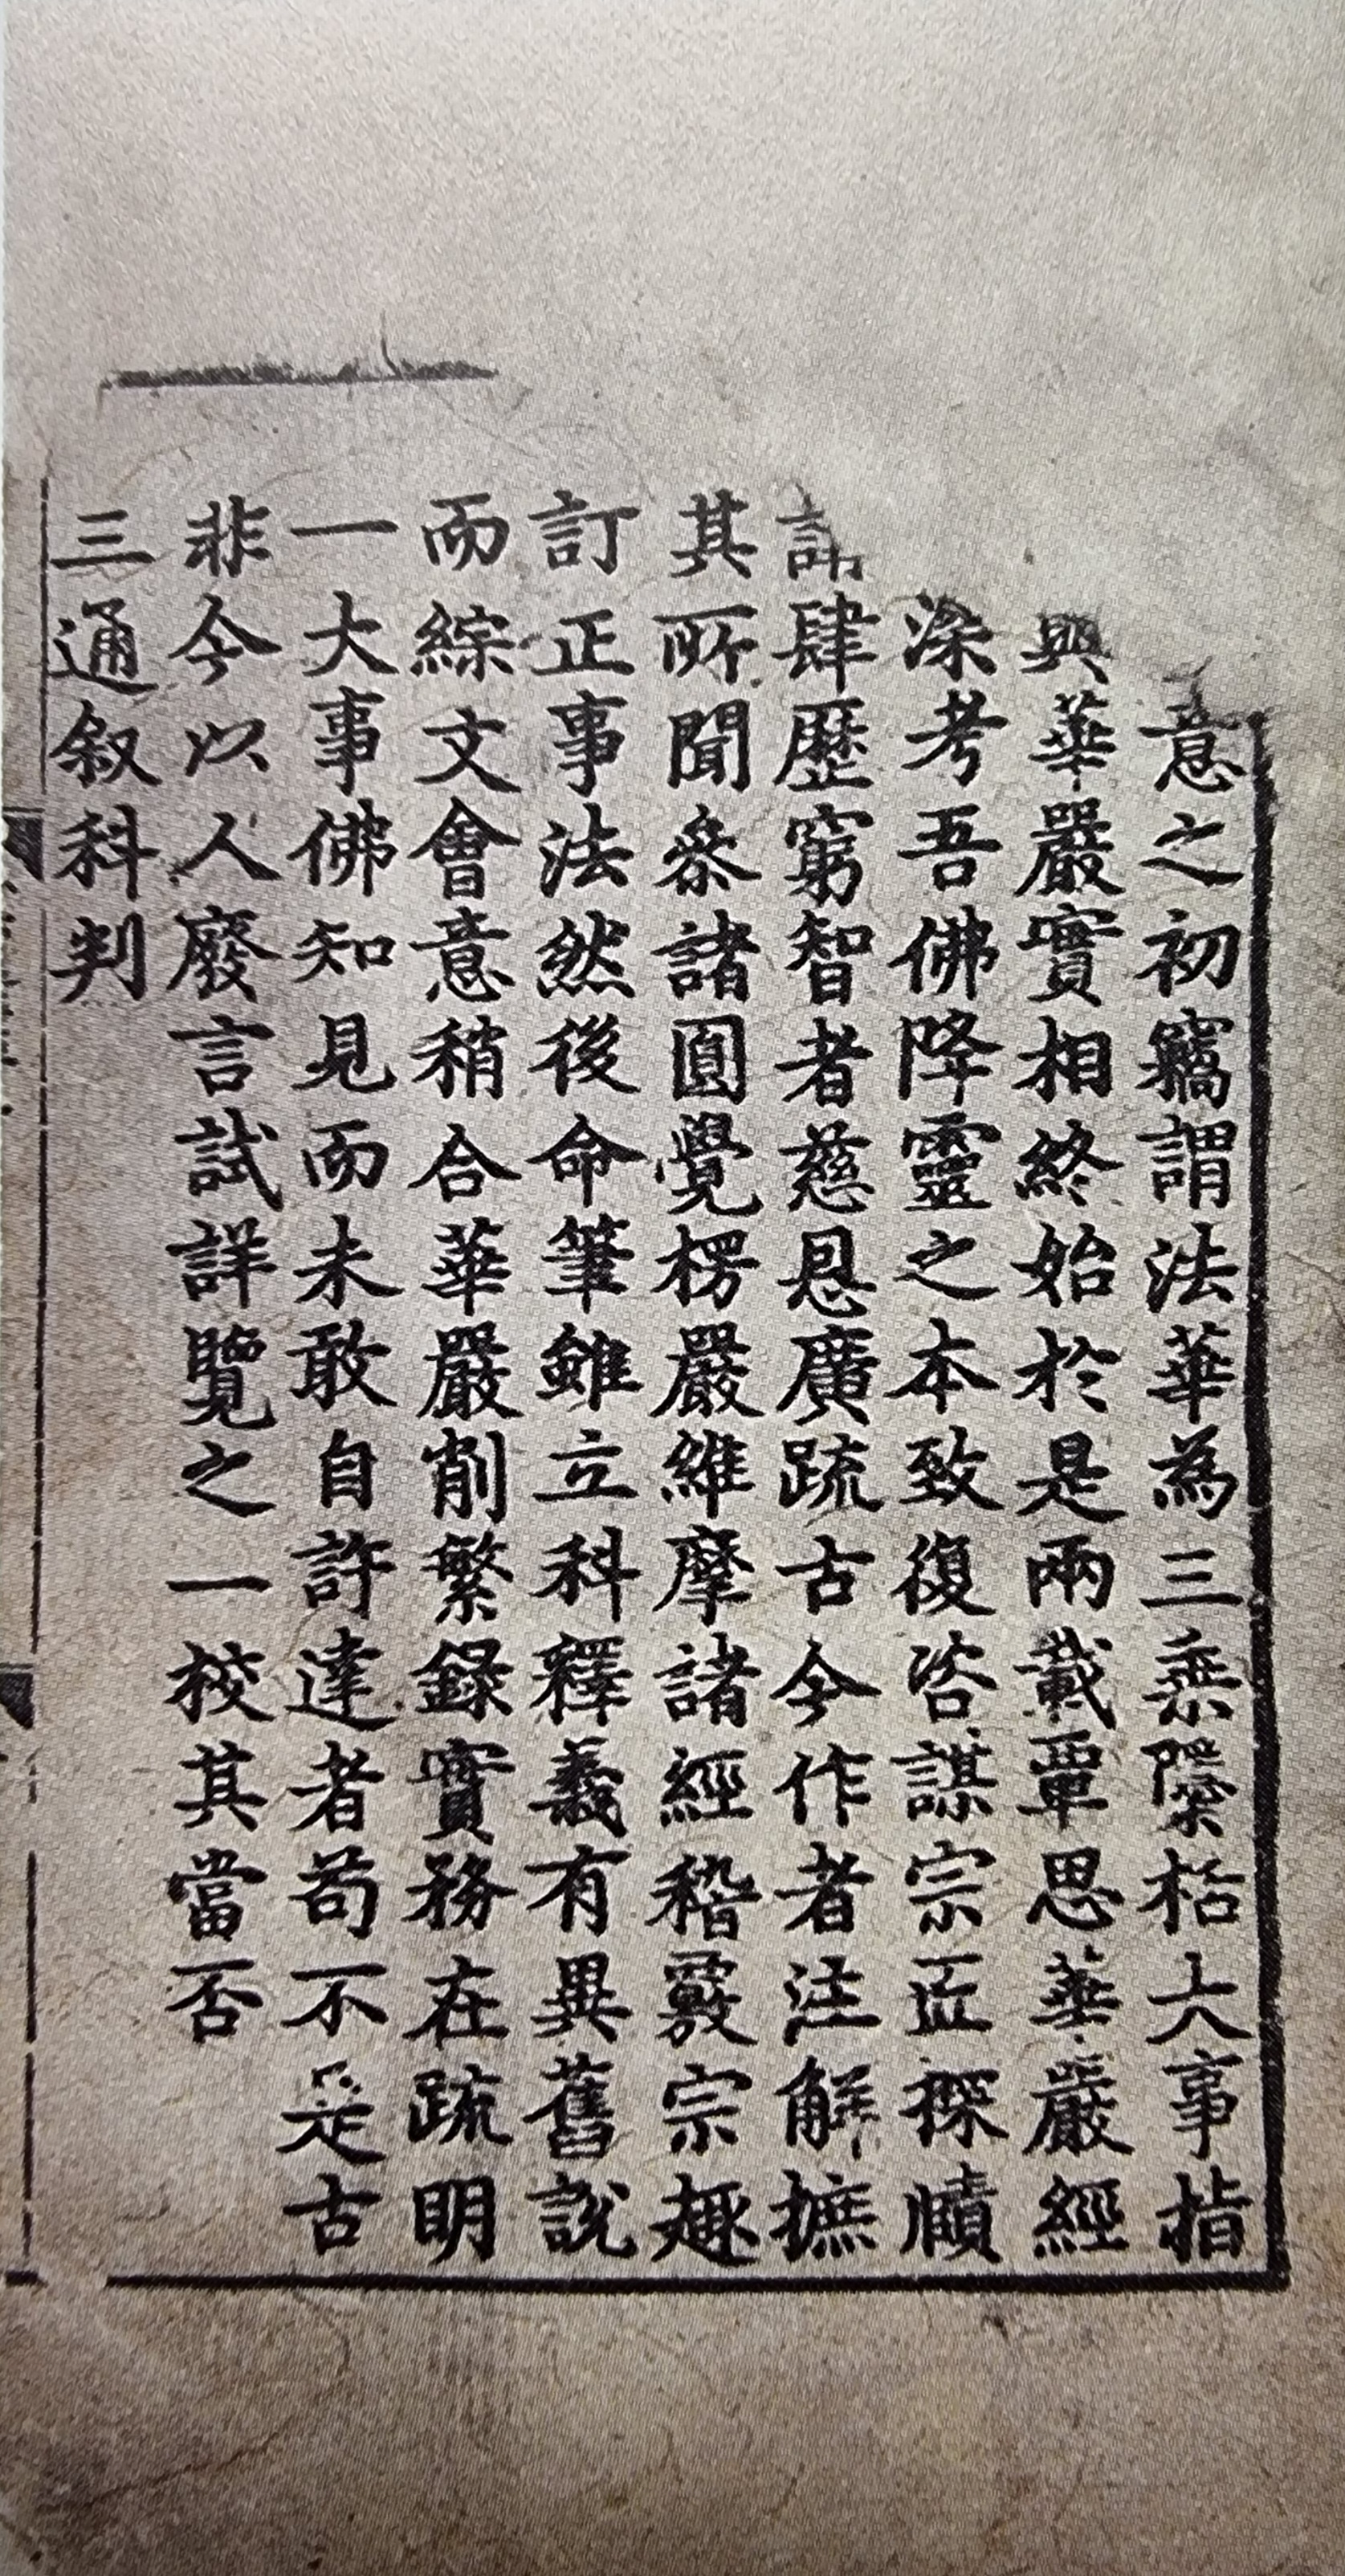 意之初竊謂法華為三乗隱栝大事指
興華嚴實相終始於是兩載覃思華嚴經
深考吾佛降靈之本致復咨謀宗匠探賾
講肆歷窮智者慈恩廣疏古今作者注解摭
其所聞叅諸圓覺楞嚴維摩諸經稽覈宗趣
訂正事法然後命筆雖立科釋義有異舊說
而綜文會意稍合華嚴削繁錄實務在疏明
一大事佛知見而未敢自許達者苟不是古
非今以人廢言試詳覽之一校其當否
三通叙科判